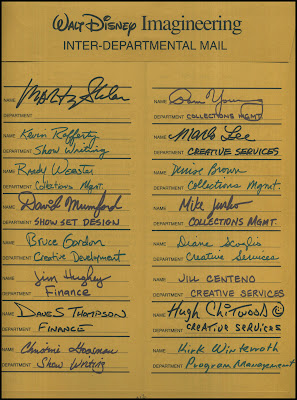 WALT DISNEY Imagineering
INTER-DEPARTMENTAL MAIL
NAME Marty Sklar
DEPARTMENT
NAME Kevin Rafferty
DEPARTMENT Show Writing
NAME Randy Webster
DEPARTMENT Collections Mgmt.
NAME David Mumford
DEPARTMENT SHOW SET DESIGN
NAME Bruce Gordon
DEPARTMENT Creative Development
NAME Jim Hughey
DEPARTMENT Finance
NAME DAVE S THOMPSON
DEPARTMENT FINANCE
NAME
DEPARTMENT Show Writing
NAME Dan Young
DEPARTMENT COLLECTIONS MGMT
NAME Mark Lee
DEPARTMENT CREATIVE SERVICES
NAME Denise Brown
DEPARTMENT Collections Mgmt.
NAME Mike
DEPARTMENT COLLECTIONS MGMT.
NAME Diane Scoglio
DEPARTMENT Creative Services
NAME JILL CENTENO
DEPARTMENT CREATIVE SERVICES
NAME Hugh Chitwood ©
DEPARTMENT CREATIVE SERVICES
NAME Kirk Winterroth
DEPARTMENT Program Management